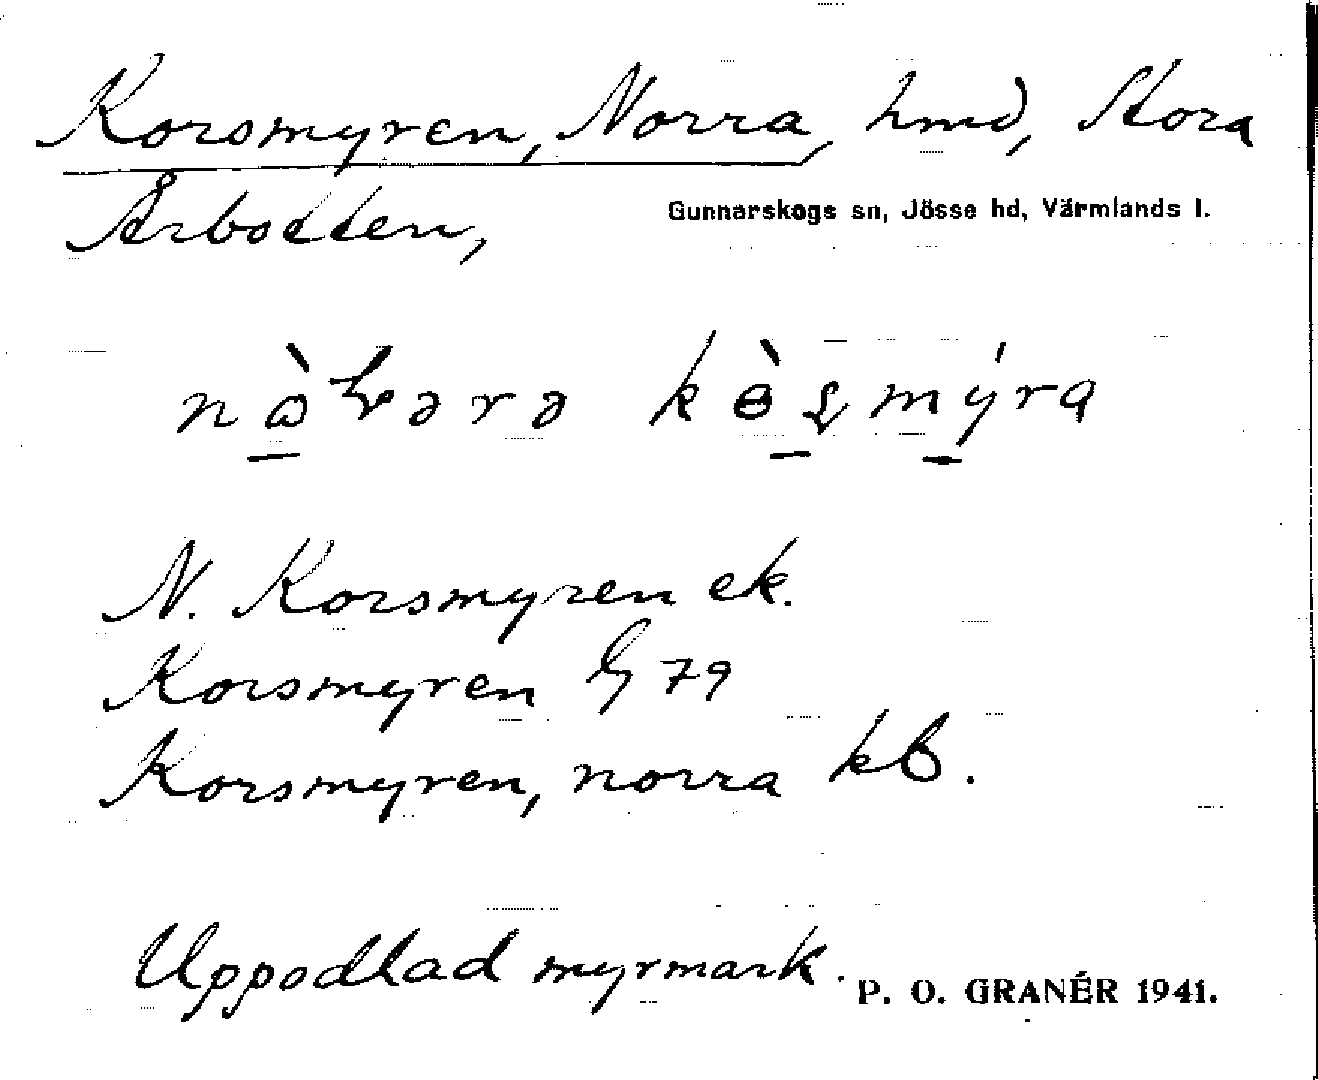 Korsmyren, Norra, hmd, Stora
Årbotten,
Gunnarskogs sn, Jösse hd, Värmlands l.
N. Korsmyren ek.
Korsmyren G 79
Korsmyren, norra kb.
Uppodlad myrmark.
P. O. GRANÉR 1941.